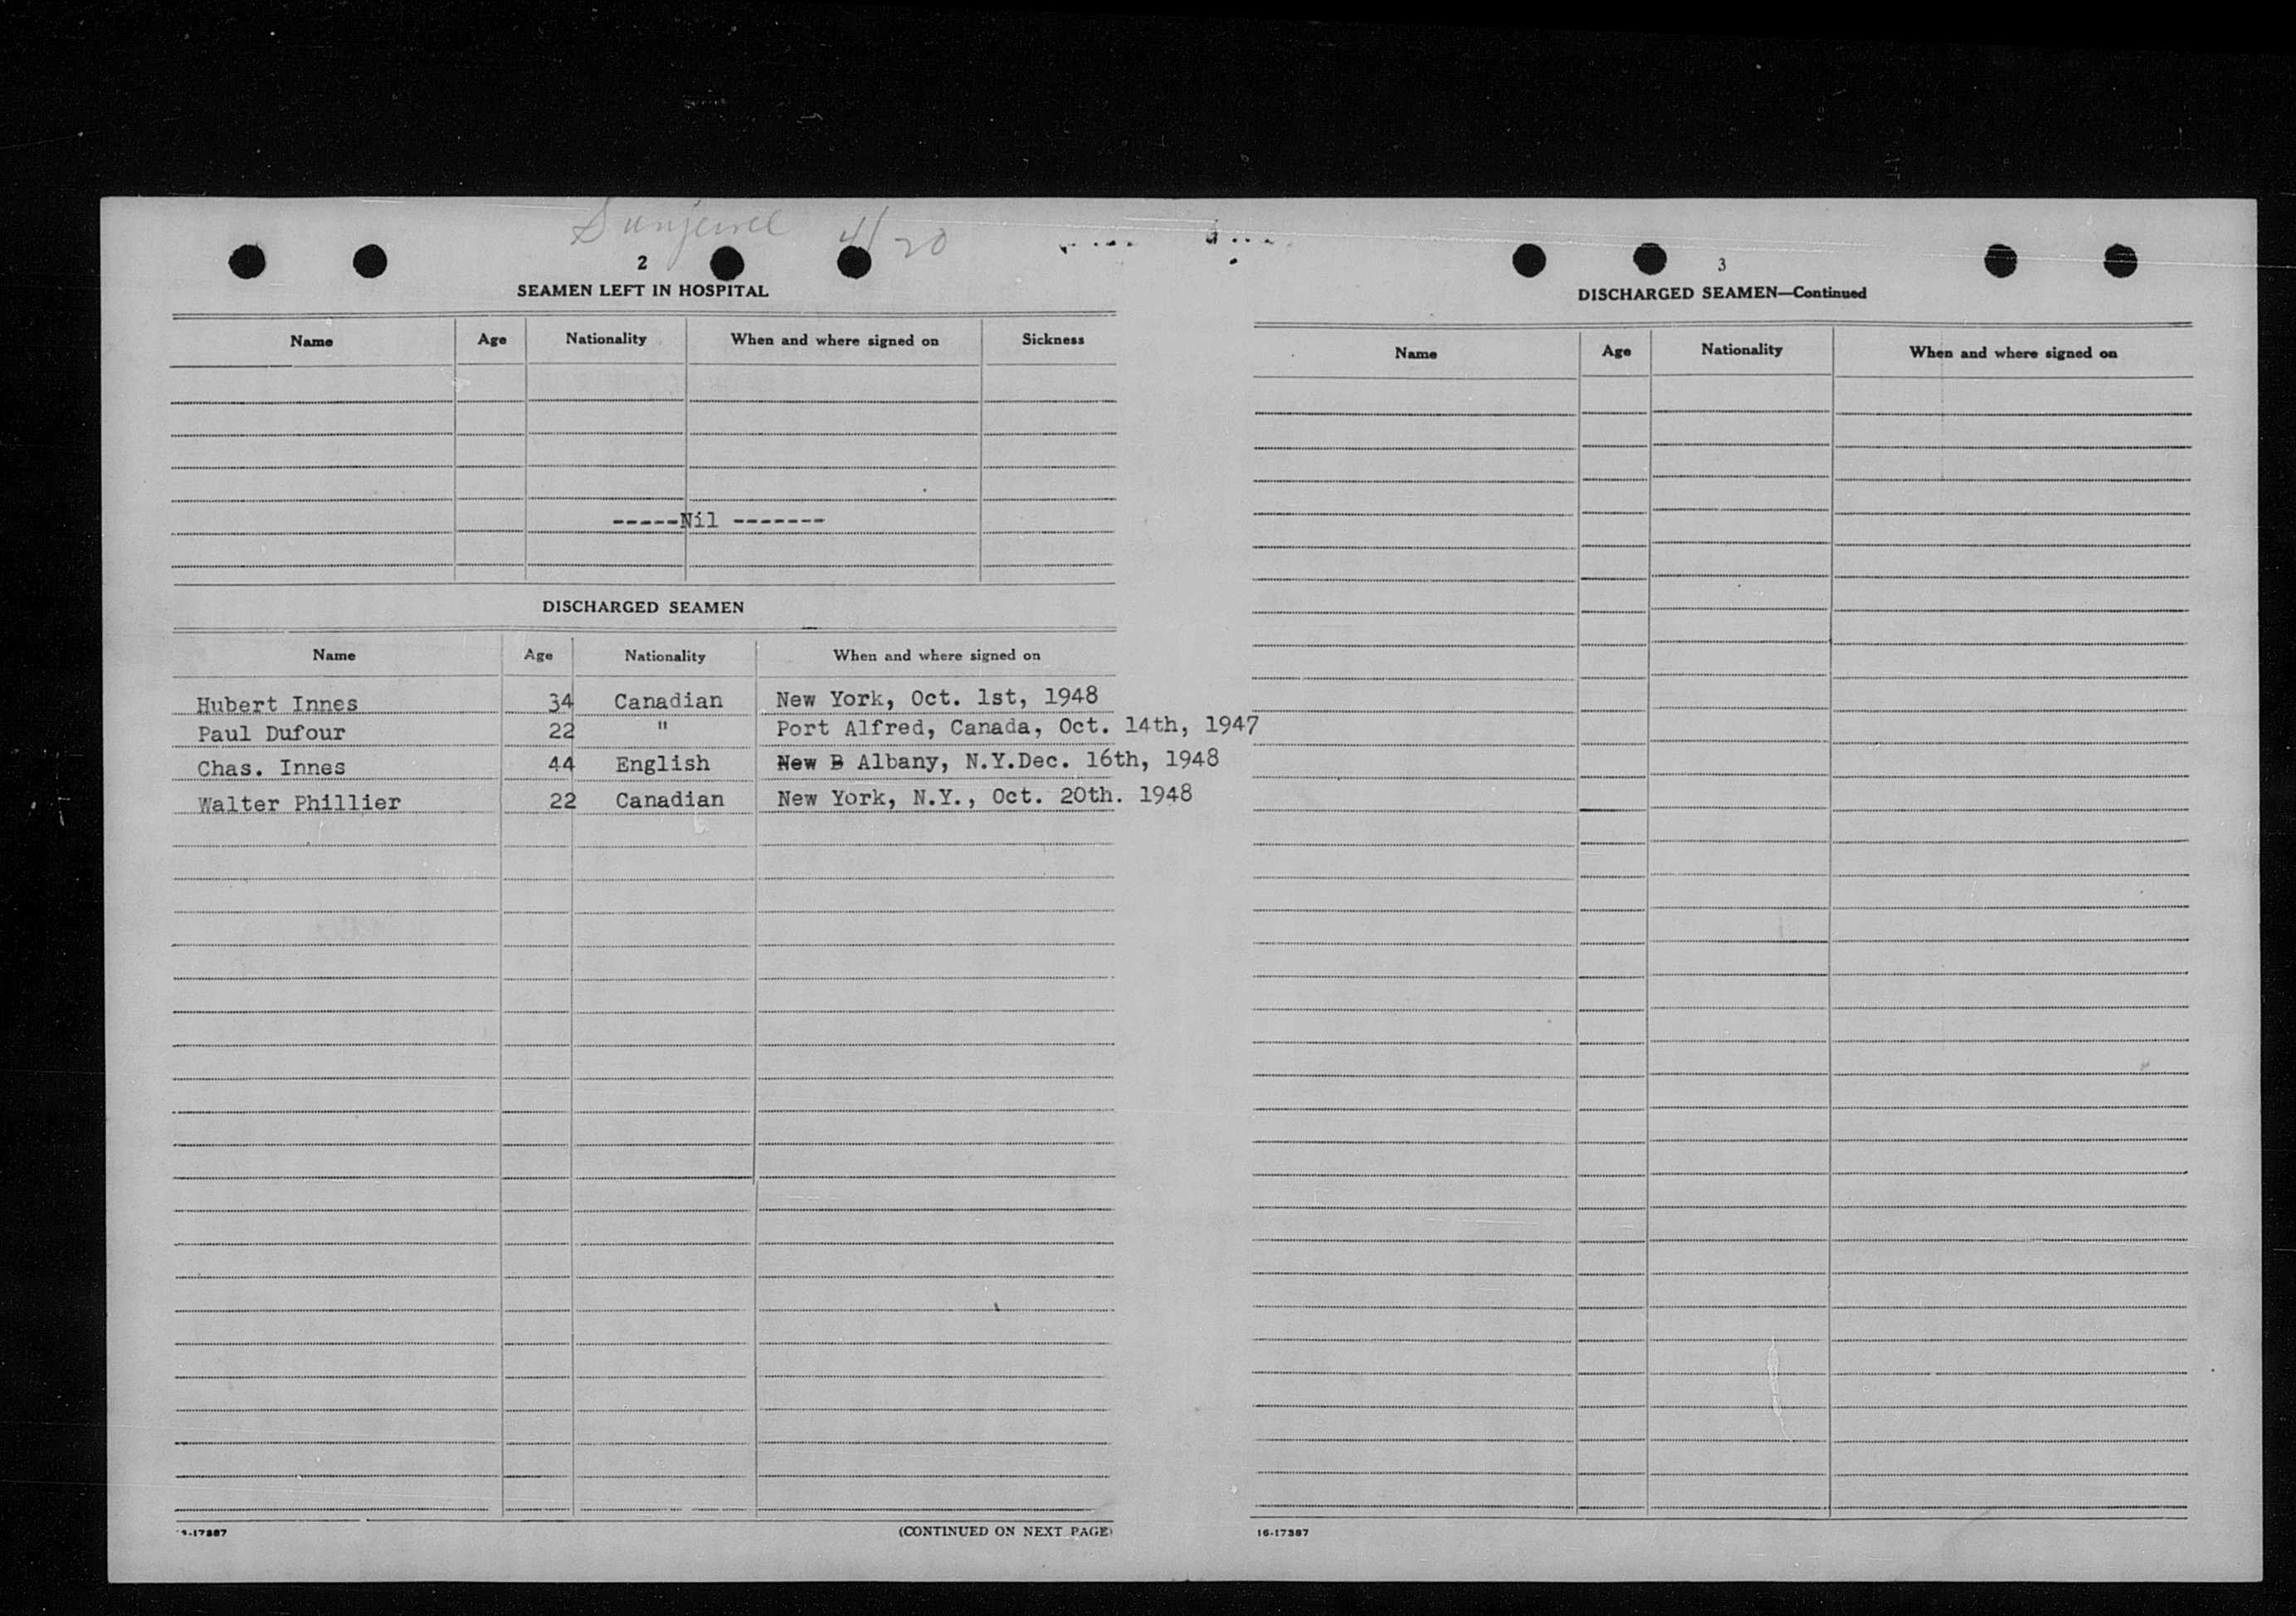 Sunjewel 4/20
2
SEAMEN LEFT IN HOSPITAL
Name Age Nationality When and where signed on Sickness
-----Nil -------
DISCHARGED SEAMEN
Name Age Nationality When and where signed on
Hubert Innes 34 Canadian New York, Oct. 1st, 1948
Paul Dufour 22 " Port Alfred, Canada, Oct. 14th, 1947
Chas. Innes 44 English New B Albany, N.Y.Dec. 16th, 1948
Walter Phillier 22 Canadian New York, N.Y., Oct. 20th. 1948
(CONTINUED ON NEXT PAGE)
3
DISCHARGED SEAMEN—Continued
Name Age Nationality When and where signed on
16-17387